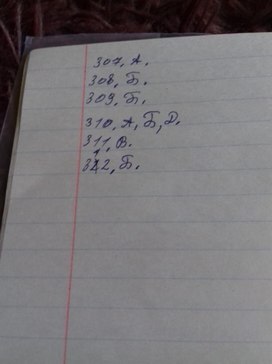 307, А.
308, Б.
309, Б.
310, А, Б, Д.
311, В.
312, Б.